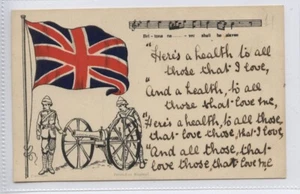 Bri-tons ne - - - ver shall be slaves
"Here's a health, to all
those that I love,
"And a health, to all
those that love me,
"Here's a health, to all those,
that love those, that I love,
"And all those, that
love those, that love me